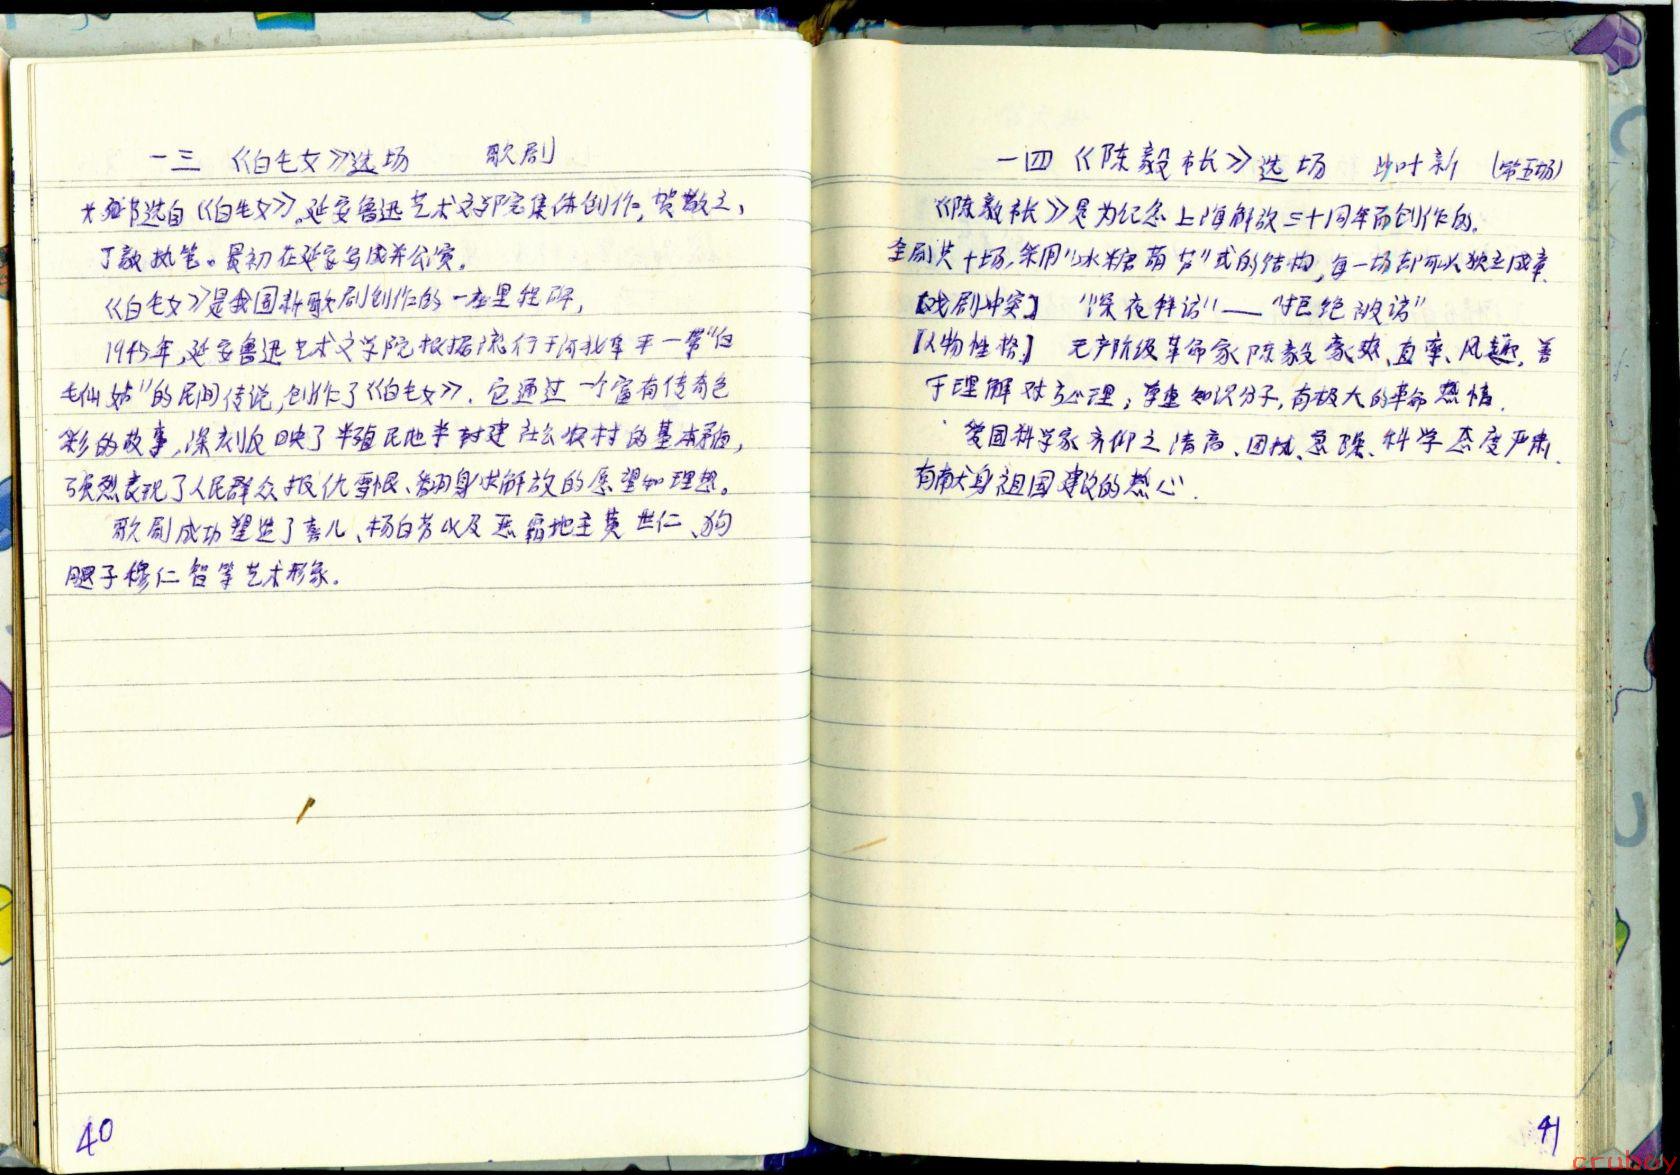 一三 《白毛女》选场 歌剧
本篇节选自《白毛女》。延安鲁迅艺术文学院集体创作,贺敬之、
丁毅执笔。最初在延安写成并公演。
《白毛女》是我国新歌剧创作的一座里程碑,
1945年,延安鲁迅艺术文学院根据流行于河北阜平一带"白
毛仙姑"的民间传说,创作了《白毛女》。它通过一个富有传奇色
彩的故事,深刻反映了半殖民地半封建社会农村的基本矛盾,
强烈表现了人民群众报仇雪恨、翻身求解放的愿望和理想。
歌剧成功塑造了喜儿、杨白劳以及恶霸地主黄世仁、狗
腿子穆仁智等艺术形象。
40
一四 《陈毅市长》选场 沙叶新 (第五场)
《陈毅市长》是为纪念上海解放三十周年而创作的。
全剧共十场,采用"冰糖葫芦"式的结构,每一场都可以独立成章.
【戏剧冲突】 "深夜拜访"——"拒绝被访"
【人物性格】 无产阶级革命家陈毅豪爽、直率、风趣,善
于理解对方心理;尊重知识分子,有极大的革命热情.
爱国科学家齐仰之清高、固执、急躁、科学态度严肃.
有献身祖国建设的热心.
41
crubey